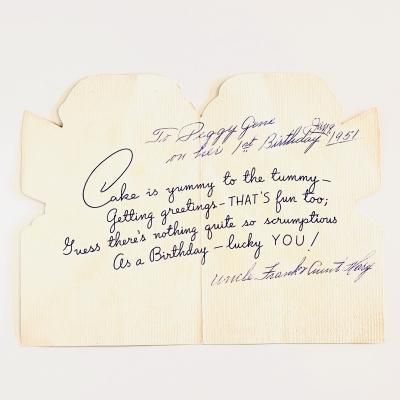 To Peggy Jene
on her 1st Birthday 1951
Cake is yummy to the tummy—
Getting greetings—THAT'S fun too;
Guess there's nothing quite so scrumptious
As a Birthday—lucky YOU!
Uncle Frank & Aunt Mary